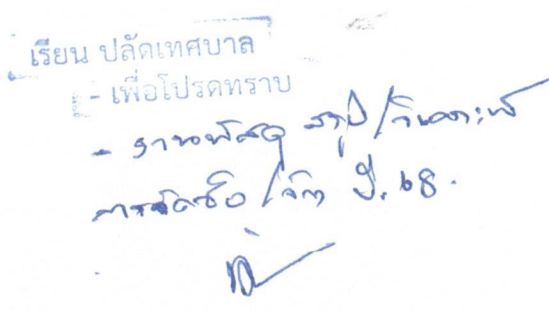 เรียน ปลัดเทศบาล
- เพื่อโปรดทราบ
- งานพัสดุ สรุป/วิเคราะห์
การจัดซื้อ/จ้าง ปี. 68.